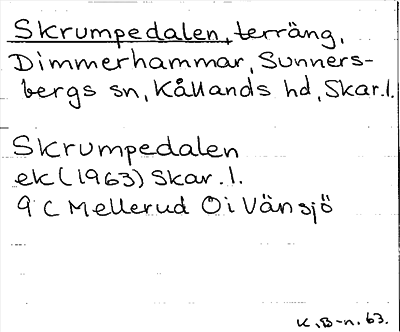 Skrumpedalen, terräng,
Dimmerhammar, Sunners-
bergs sn, Kållands hd, Skar.l.
Skrumpedalen
ek (1963) Skar.l.
9 C Mellerud Ö i Vänsjö
K. B-n. 63.